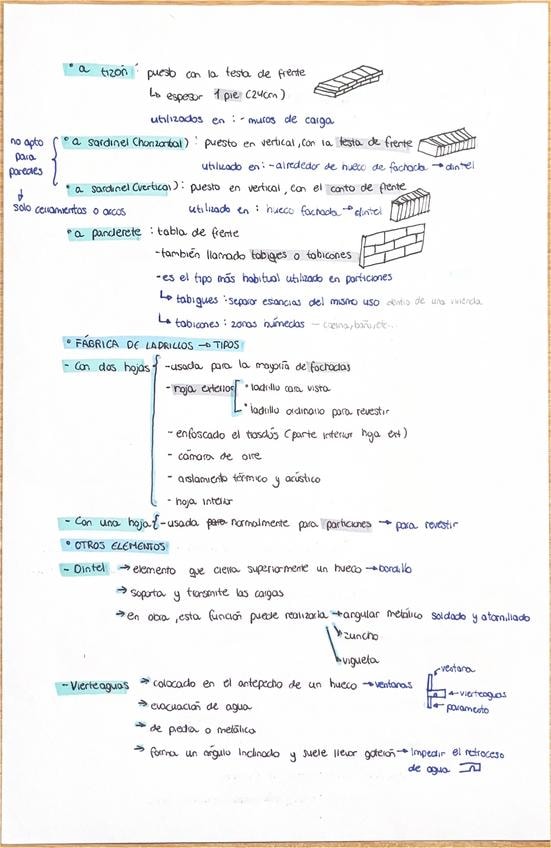 • a tizón : puesto con la testa de frente
↳ espesor 1 pie (24cm)
utilizados en : - muros de carga
no apto para paredes
↓
solo cerramientos o arcos
• a sardinel (horizontal) : puesto en vertical, con la testa de frente
utilizado en : - alrededor de hueco de fachada → dintel
• a sardinel (vertical) : puesto en vertical, con el canto de frente
utilizado en : hueco fachada → dintel
• a panderete : tabla de frente
- también llamado tabiques o tabicones
- es el tipo más habitual utilizado en particiones
↳ tabiques : separar estancias del mismo uso dentro de una vivienda
↳ tabicones : zonas húmedas - cocina, baño, etc..
• FÁBRICA DE LADRILLOS → TIPOS
- Con dos hojas { - usada para la mayoría de fachadas
- hoja exterior [ • ladrillo cara vista
• ladrillo ordinario para revestir
- enfoscado el trasdós (parte interior hoja ext)
- cámara de aire
- aislamiento térmico y acústico
- hoja interior
- Con una hoja { - usada normalmente para particiones → para revestir
• OTROS ELEMENTOS
- Dintel → elemento que cierra superiormente un hueco →
→ soporta y transmite las cargas
→ en obra, esta función puede realizarla → angular metálico soldado y atornillado
↘ zuncho
↘ vigueta
- Vierteaguas → colocado en el antepecho de un hueco → ventanas
ventana
← vierteaguas
← paramento
→ evacuación de agua
→ de piedra o metálico
→ forma un ángulo inclinado y suele llevar goterón → impedir el retroceso
de agua